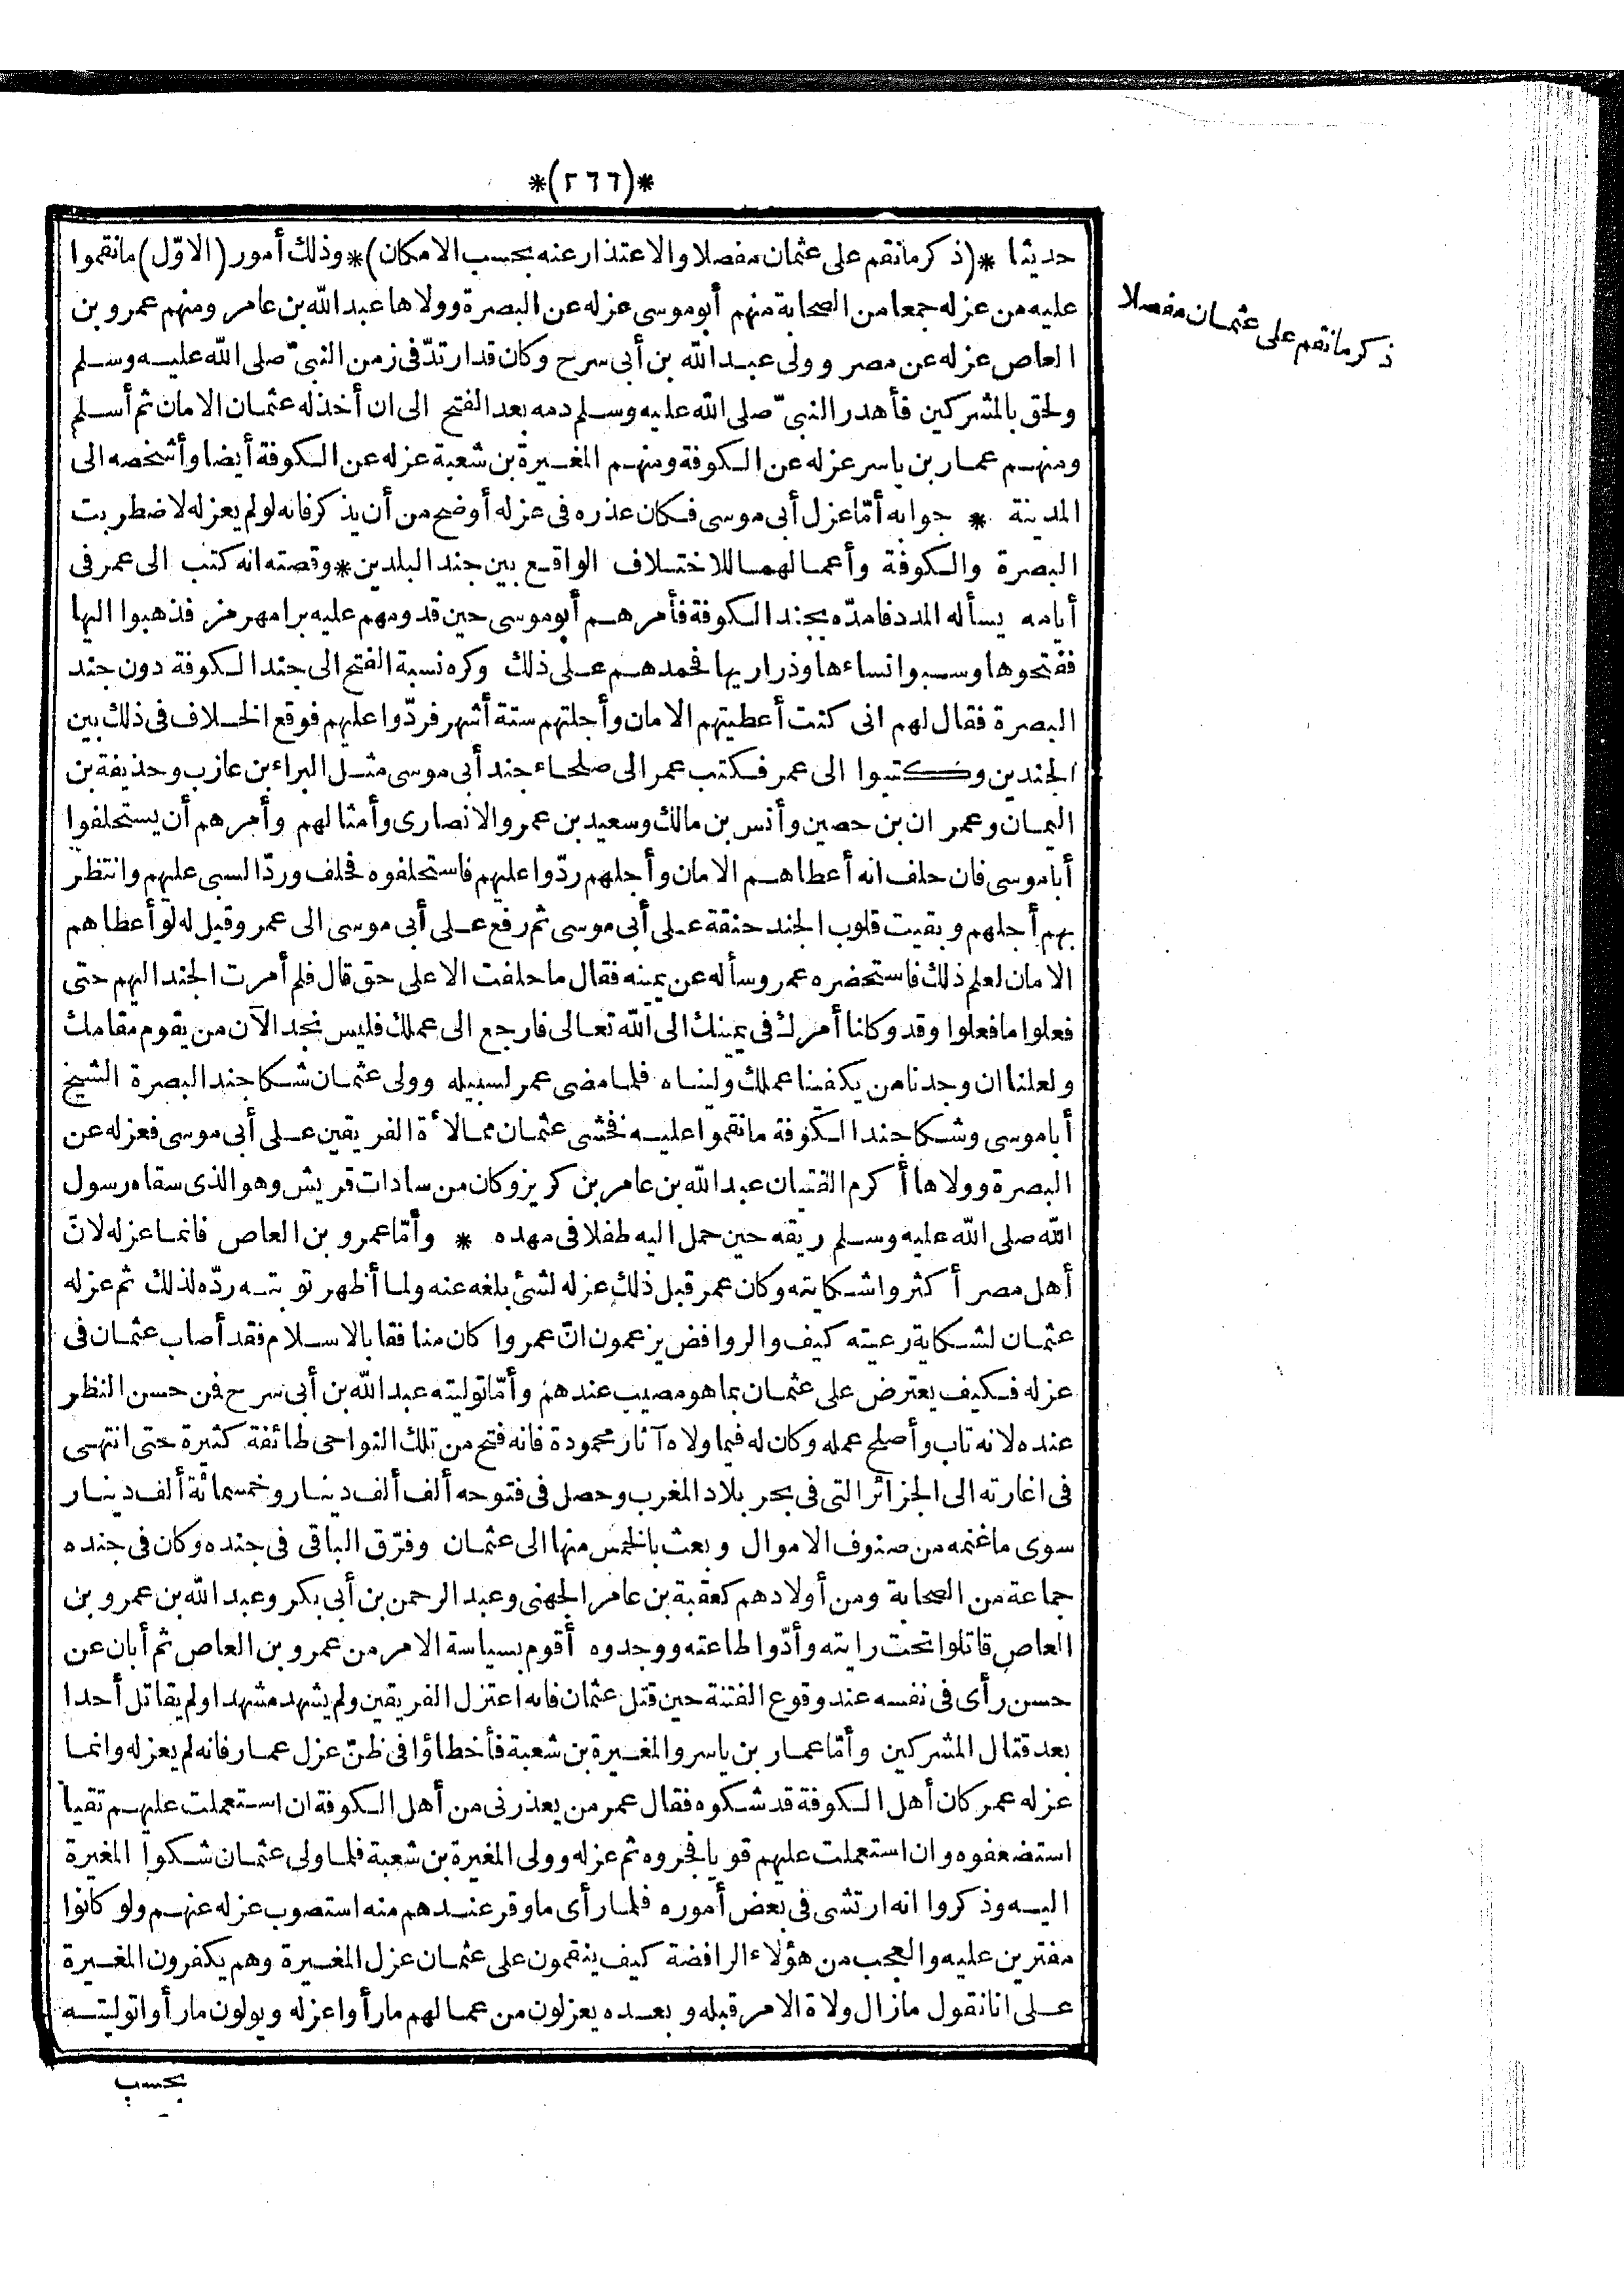 *(٢٦٦)*
حديثا *(ذكر ما نقم على عثمان مفصلا والاعتذار عنه بحسب الامكان)* وذلك أمور (الاوّل) ما نقموا
ذكر ما نقم على عثمان مفصلا
عليه من عزله جمعا من الصحابة منهم أبو موسى عزله عن البصرة وولاها عبد الله بن عامر ومنهم عمرو بن
العاص عزله عن مصر وولى عبد الله بن أبى سرح وكان قد ارتدّ فى زمن النبىّ صلى الله عليه وسلم
ولحق بالمشركين فأهدر النبىّ صلى الله عليه وسلم دمه بعد الفتح الى ان أخذ له عثمان الامان ثم أسلم
ومنهم عمار بن ياسر عزله عن الكوفة ومنهم المغيرة بن شعبة عزله عن الكوفة أيضا وأشخصه الى
المدينة * جوابه أمّا عزل أبى موسى فكان عذره فى عزله أوضح من أن يذكر فانه لو لم يعزله لاضطربت
البصرة والكوفة وأعمالهما للاختلاف الواقع بين جند البلدين * وقصته انه كتب الى عمر فى
أيامه يسأله المدد فامدّه بجند الكوفة فأمرهم أبو موسى حين قدومهم عليه برامهرمز فذهبوا اليها
ففتحوها وسبوا نساءها وذراريها فحمدهم على ذلك وكره نسبة الفتح الى جند الكوفة دون جند
البصرة فقال لهم انى كنت أعطيتهم الامان وأجلتهم ستة أشهر فردّوا عليهم فوقع الخلاف فى ذلك بين
الجندين وكتبوا الى عمر فكتب عمر الى صلحاء جند أبى موسى مثل البراء بن عازب وحذيفة بن
اليمان وعمران بن حصين وأنس بن مالك وسعيد بن عمرو الانصارى وأمثالهم وأمرهم أن يستحلفوا
أبا موسى فان حلف انه أعطاهم الامان وأجلهم ردّوا عليهم فاستحلفوه فحلف وردّ السبى عليهم وانتظر
بهم أجلهم وبقيت قلوب الجند حنقة على أبى موسى ثم رفع على أبى موسى الى عمر وقيل له لو أعطاهم
الامان لعلم ذلك فاستحضره عمر وسأله عن يمينه فقال ما حلفت الا على حق قال فلم أمرت الجند اليهم حتى
فعلوا ما فعلوا وقد وكلنا أمرك فى يمينك الى الله تعالى فارجع الى عملك فليس نجد الآن من يقوم مقامك
ولعلنا ان وجدنا من يكفينا عملك وليناه فلما مضى عمر لسبيله وولى عثمان شكا جند البصرة الشيخ
أبا موسى وشكا جند الكوفة ما نقموا عليه فخشى عثمان ممالأة الفريقين على أبى موسى فعزله عن
البصرة وولاها أكرم الفتيان عبد الله بن عامر بن كريز وكان من سادات قريش وهو الذى سقاه رسول
الله صلى الله عليه وسلم ريقه حين حمل اليه طفلا فى مهده * وأمّا عمرو بن العاص فانما عزله لانّ
أهل مصر أكثروا شكايته وكان عمر قبل ذلك عزله لشئ بلغه عنه ولما أظهر توبته ردّه لذلك ثم عزله
عثمان لشكاية رعيته كيف والروافض يزعمون انّ عمروا كان منافقا بالاسلام فقد أصاب عثمان فى
عزله فكيف يعترض على عثمان بما هو مصيب عندهم وأمّا توليته عبد الله بن أبى سرح فمن حسن النظر
عنده لانه تاب وأصلح عمله وكان له فيما ولاه آثار محمودة فانه فتح من تلك النواحى طائفة كثيرة حتى انتهى
فى اغارته الى الجزائر التى فى بحر بلاد المغرب وحصل فى فتوحه ألف ألف دينار وخمسمائة ألف دينار
سوى ما غنمه من صنوف الاموال وبعث بالخمس منها الى عثمان وفرّق الباقى فى جنده وكان فى جنده
جماعة من الصحابة ومن أولادهم كعقبة بن عامر الجهنى وعبد الرحمن بن أبى بكر وعبد الله بن عمرو بن
العاص قاتلوا تحت رايته وأدّوا طاعته ووجدوه أقوم بسياسة الامر من عمرو بن العاص ثم أبان عن
حسن رأى فى نفسه عند وقوع الفتنة حين قتل عثمان فانه اعتزل الفريقين ولم يشهد مشهدا ولم يقاتل أحدا
بعد قتال المشركين وأمّا عمار بن ياسر والمغيرة بن شعبة فأخطاؤا فى ظنّ عزل عمار فانه لم يعزله وانما
عزله عمر كان أهل الكوفة قد شكوه فقال عمر من يعذرنى من أهل الكوفة ان استعملت عليهم تقيا
استضعفوه وان استعملت عليهم قويا فجروه ثم عزله وولى المغيرة بن شعبة فلما ولى عثمان شكوا المغيرة
اليه وذكروا انه ارتشى فى بعض أموره فلما رأى ما وقر عندهم منه استصوب عزله عنهم ولو كانوا
مفترين عليه والعجب من هؤلاء الرافضة كيف ينقمون على عثمان عزل المغيرة وهم يكفرون المغيرة
على انا نقول ما زال ولاة الامر قبله وبعده يعزلون من عمالهم ما رأوا عزله ويولون ما رأوا توليته
بحسب